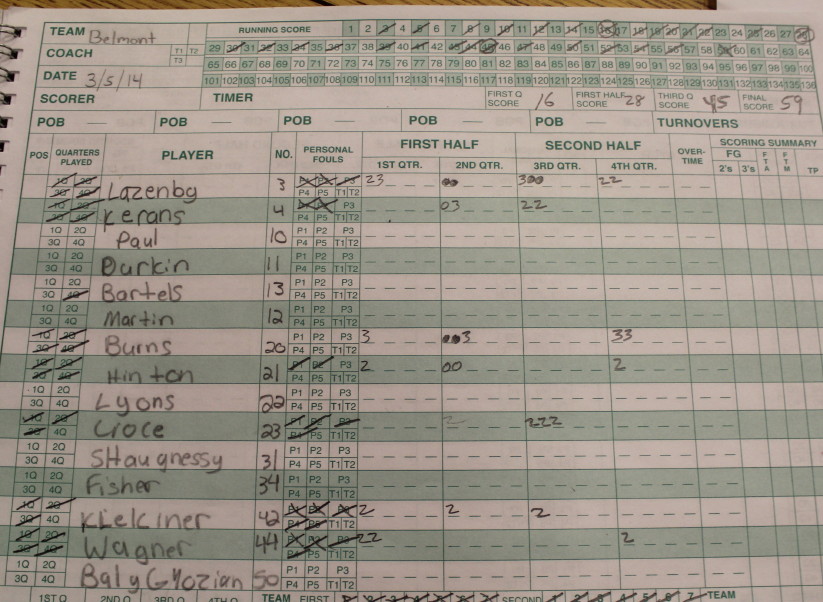 TEAM Belmont RUNNING SCORE 1 2 3 4 5 6 7 8 9 10 11 12 13 14 15 16 17 18 19 20 21 22 23 24 25 26 27 28
COACH T1 T2 T3 29 30 31 32 33 34 35 36 37 38 39 40 41 42 43 44 45 46 47 48 49 50 51 52 53 54 55 56 57 58 59 60 61 62 63 64
65 66 67 68 69 70 71 72 73 74 75 76 77 78 79 80 81 82 83 84 85 86 87 88 89 90 91 92 93 94 95 96 97 98 99 100
DATE 3/5/14 101 102 103 104 105 106 107 108 109 110 111 112 113 114 115 116 117 118 119 120 121 122 123 124 125 126 127 128 129 130 131 132 133 134 135 136
SCORER TIMER FIRST Q SCORE 16 FIRST HALF SCORE 28 THIRD Q SCORE 45 FINAL SCORE 59
POB POB POB POB POB TURNOVERS
POS QUARTERS PLAYED PLAYER NO. PERSONAL FOULS FIRST HALF SECOND HALF OVER-TIME SCORING SUMMARY
1ST QTR. 2ND QTR. 3RD QTR. 4TH QTR. FG 2's 3's FTA FTM TP
1Q 2Q Lazenby 3 P1 P2 P3 23 300 22
3Q 4Q P4 P5 T1 T2
1Q 2Q Kerans 4 P1 P2 P3 03 22
3Q 4Q P4 P5 T1 T2
1Q 2Q Paul 10 P1 P2 P3
3Q 4Q P4 P5 T1 T2
1Q 2Q Durkin 11 P1 P2 P3
3Q 4Q P4 P5 T1 T2
1Q 2Q Bartels 13 P1 P2 P3
3Q 4Q P4 P5 T1 T2
1Q 2Q Martin 12 P1 P2 P3
3Q 4Q P4 P5 T1 T2
1Q 2Q Burns 20 P1 P2 P3 3 3 33
3Q 4Q P4 P5 T1 T2
1Q 2Q Hinton 21 P1 P2 P3 2 00 2
3Q 4Q P4 P5 T1 T2
1Q 2Q Lyons 22 P1 P2 P3
3Q 4Q P4 P5 T1 T2
1Q 2Q Croce 23 P1 P2 P3 2 222
3Q 4Q P4 P5 T1 T2
1Q 2Q SHaugnessy 31 P1 P2 P3
3Q 4Q P4 P5 T1 T2
1Q 2Q Fisher 34 P1 P2 P3
3Q 4Q P4 P5 T1 T2
1Q 2Q 42 P1 P2 P3 2 2 2
3Q 4Q P4 P5 T1 T2
1Q 2Q Wagner 44 P1 P2 P3 22 2
3Q 4Q P4 P5 T1 T2
1Q 2Q 50 P1 P2 P3
3Q 4Q P4 P5 T1 T2
1ST Q 2ND Q 3RD Q 4TH Q TEAM FIRST 1 2 3 4 5 6 7 SECOND 1 2 3 4 5 6 7 TEAM